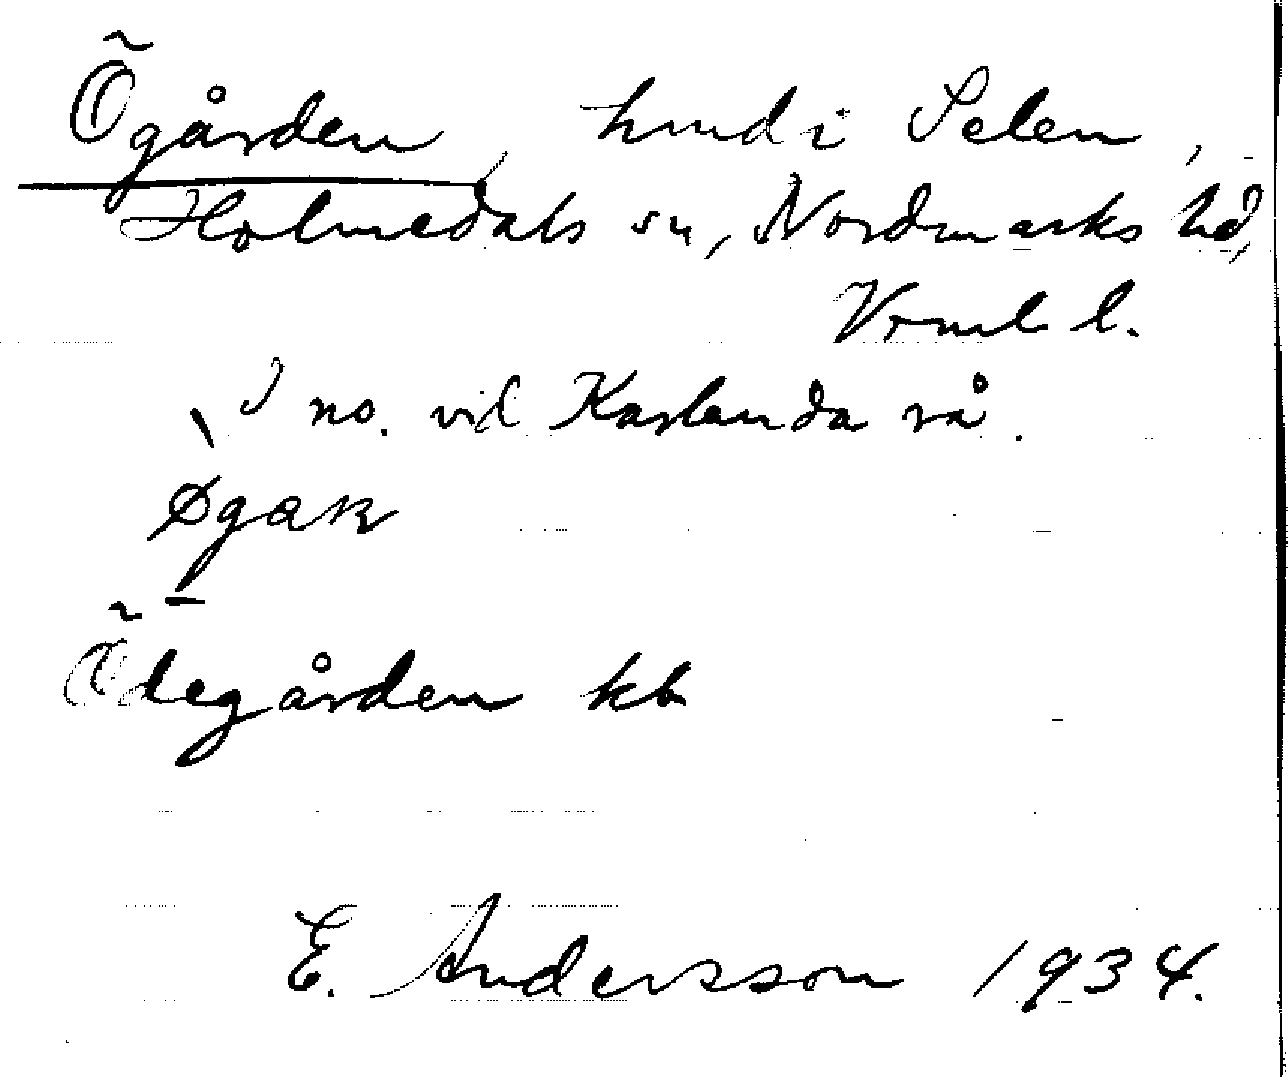 Ögården, hmd i Selen,
Holmedals sn, Nordmarks hd,
Vrml l.
I no. vid Karlanda rå.
øgaɴ
Ödegården kb
E. Andersson 1934.